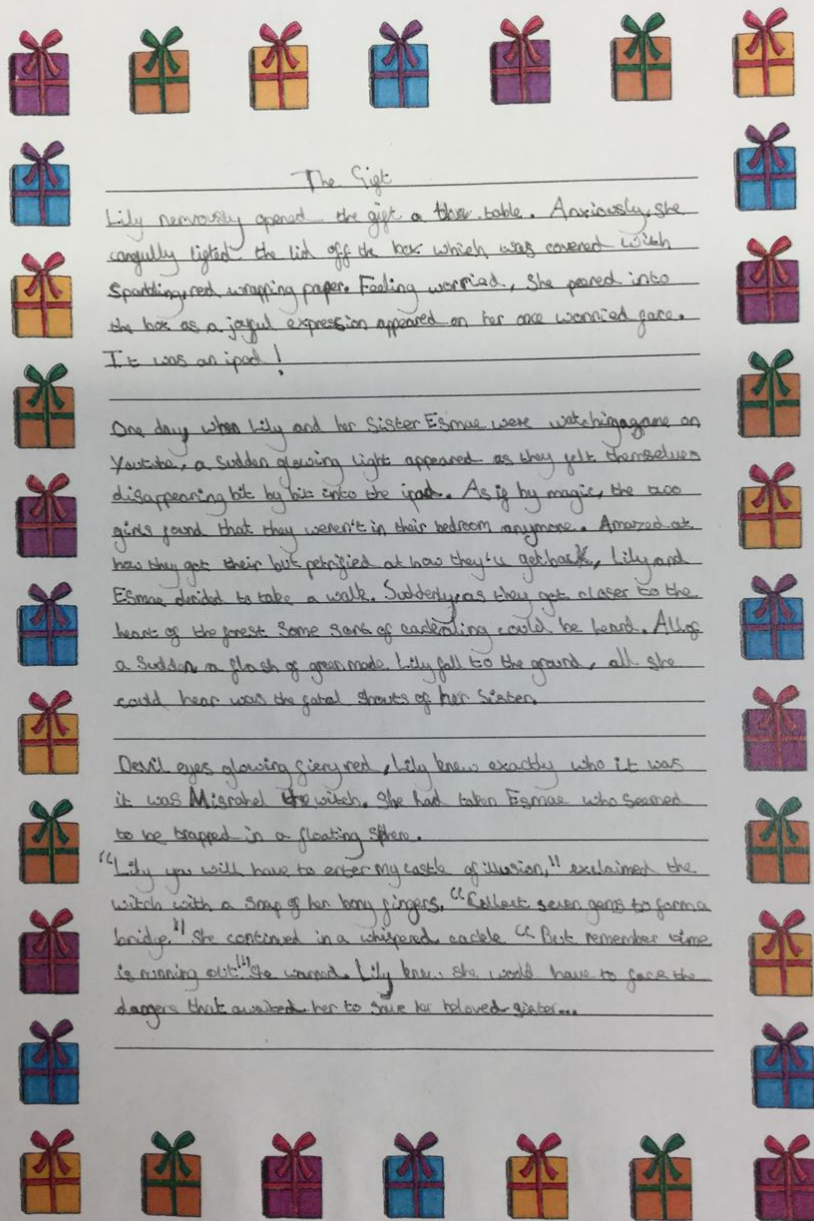 The Gift
Lily nervously opened the gift a the table. Anxiously, she
carefully lifted the lid off the box which was covered with
sparkling, red wrapping paper. Feeling worried, She peared into
the box as a joyful expression appeared on her once worried face.
It was an ipad!
One day, when Lily and her Sister Esmae were watching a game on
Youtube, a sudden glowing light appeared as they felt themselves
disappearing bit by bit into the ipad. As if by magic, the two
girls found that they weren't in their bedroom anymore. Amazed at
how they got their but petrified at how they'll get back, Lily and
Esmae decided to take a walk. Suddenly, as they get closer to the
heart of the forest some sort of cackling could be heard. All of
a Sudden a flash of green made Lily fall to the ground, all she
could hear was the fatal shouts of her Sister.
Devil eyes glowing fiery red, Lily knew exactly who it was
it was Misrahel the witch. She had taken Esmae who seemed
to be trapped in a floating sphere.
"Lily you will have to enter my castle of illusion," exclaimed the
witch with a snap of her bony fingers, "Collect seven gems to form a
bridge." She continued in a whispered cackle "But remember time
is running out!" She warned. Lily knew she would have to face the
dangers that awaited her to save her beloved sister...